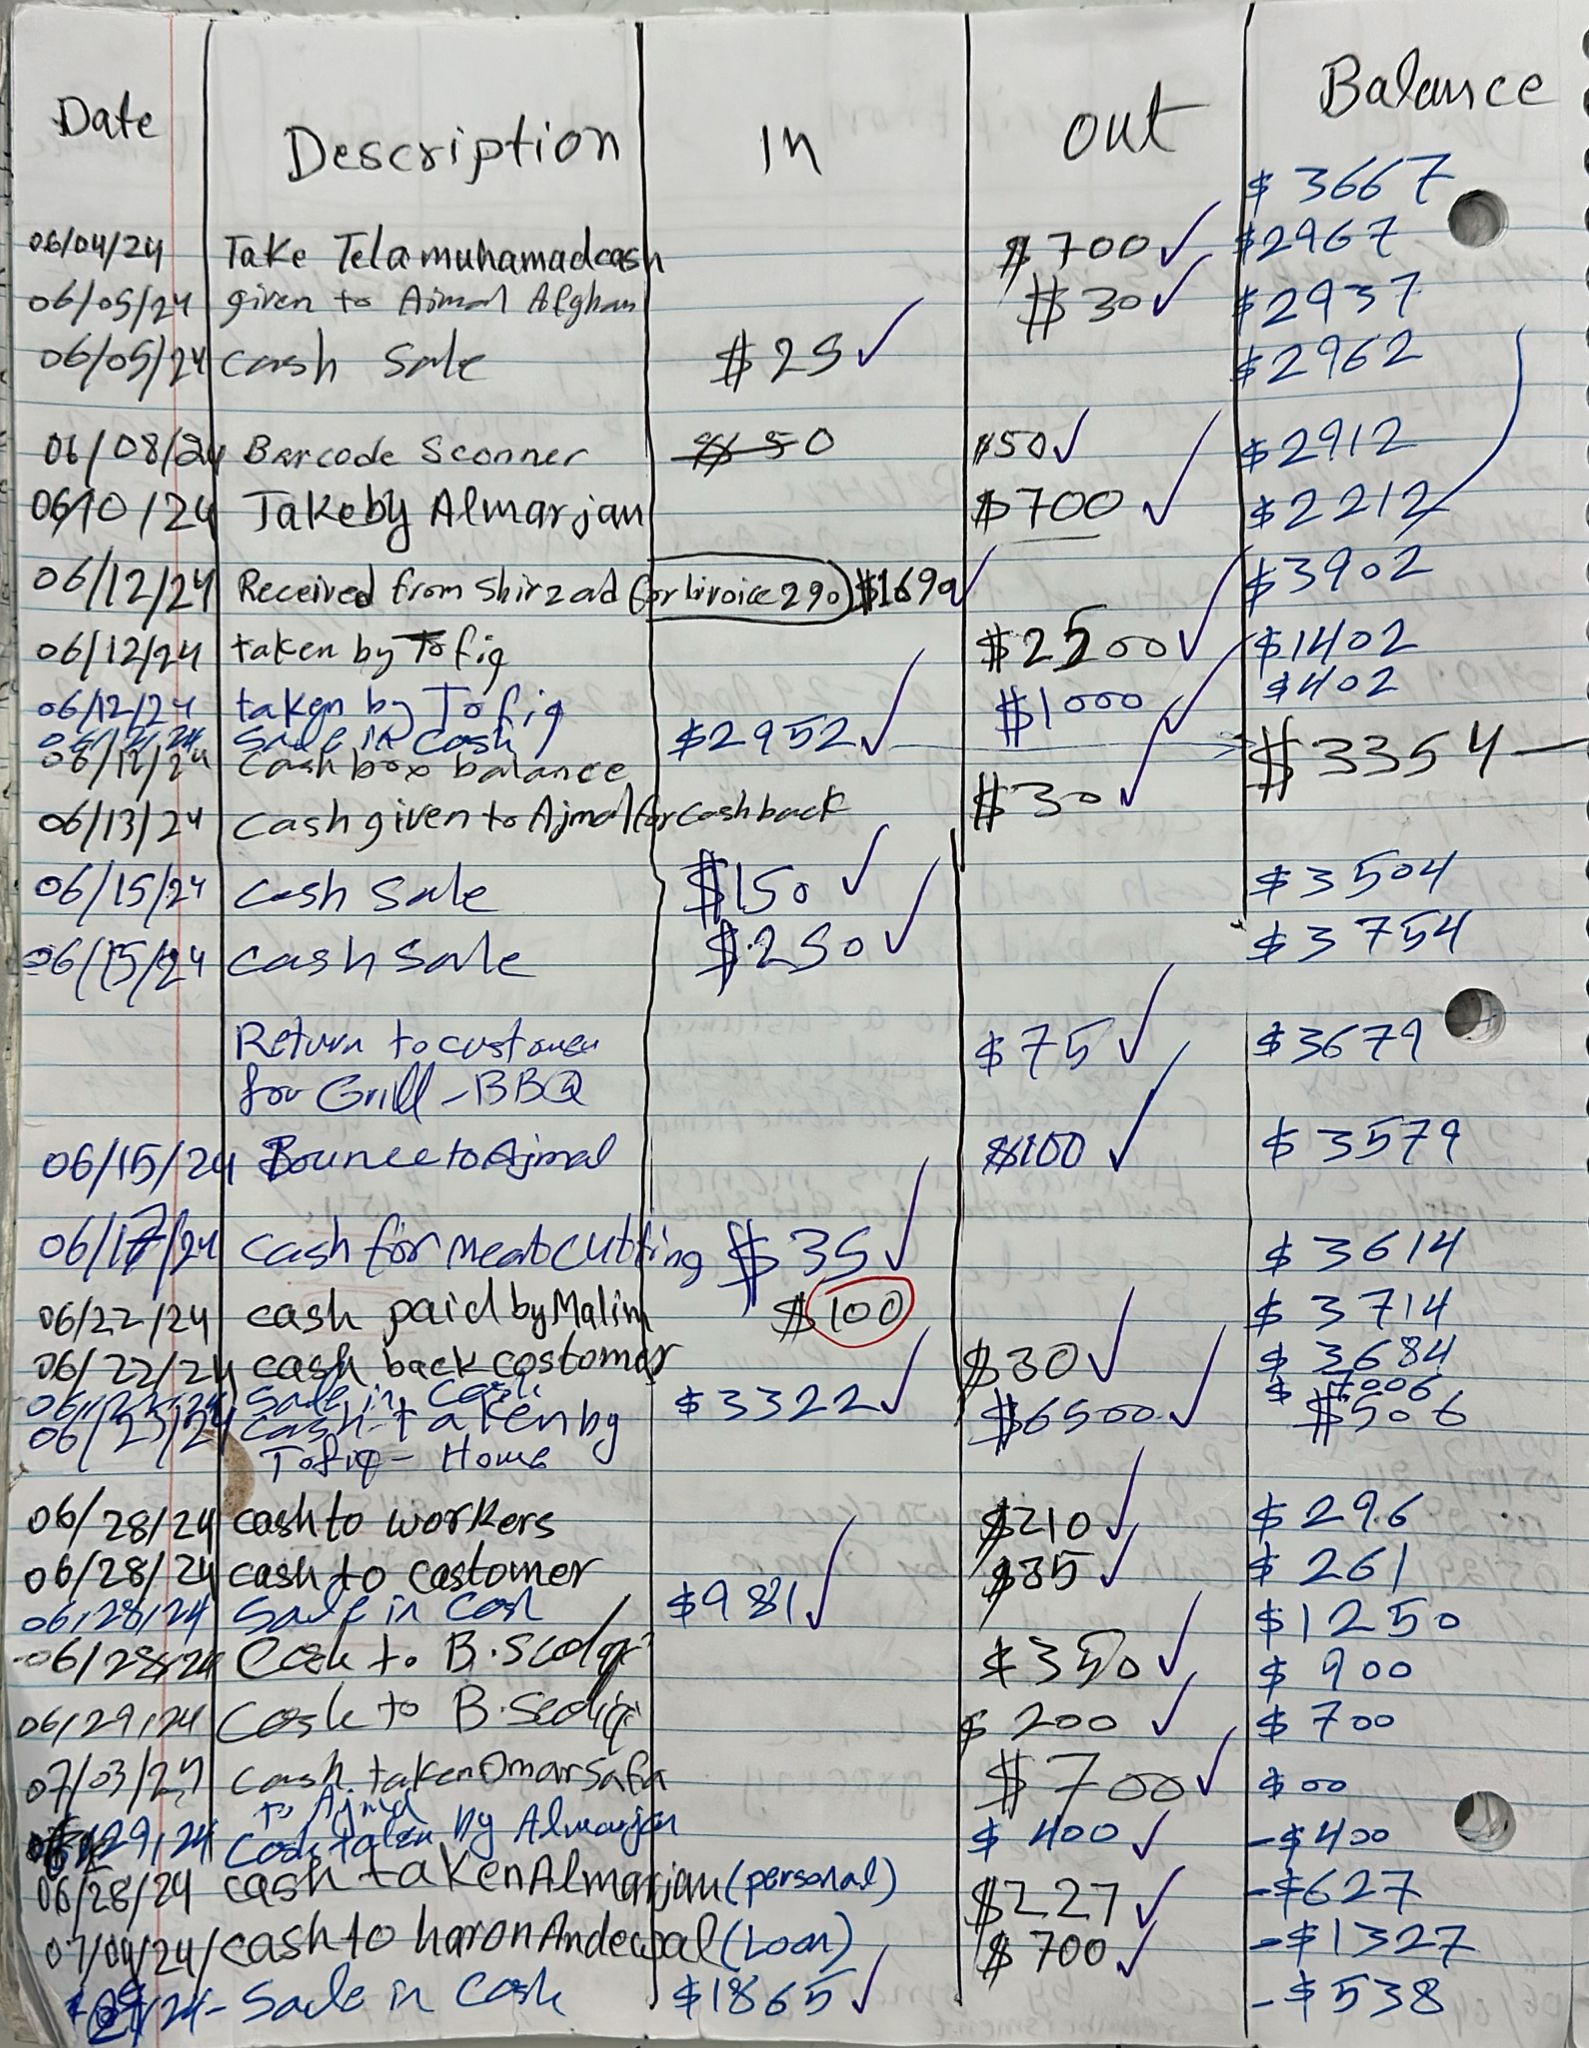 Date Description In out Balance
$ 3667
06/04/24 Take Telamuhamadcash $700 ✓ $2967
06/05/24 given to Ajmal Afghan $30 ✓ $2937
06/05/24 cash Sale $25 ✓ $2962
06/08/24 Barcode Sconner $50 $50 ✓ $2912
06/10/24 Takeby Almarjan $700 ✓ $2212
06/12/24 Received from Shirzad (for Iivoice 290) $1690 ✓ $3902
06/12/24 taken by Tofiq $2500 ✓ $1402
06/12/24 taken by Tofiq $1000 ✓ $402
06/12/24 Sale in Cash $2952 ✓ $3354
06/12/24 Cashbox balance
06/13/24 Cash given to Ajmal for cashback $30 ✓
06/15/24 Cash Sale $150 ✓ $3504
06/15/24 Cash Sale $250 ✓ $3754
Return to customer $75 ✓ $3679
for Grill - BBQ
06/15/24 Bounce to Ajmal $100 ✓ $3579
06/17/24 Cash for meat cutting $35 ✓ $3614
06/22/24 cash paid by Malim $100 $3714
06/22/24 cash back costomer $30 ✓ $3684
Sale in Cash $3322 ✓ $7006
06/23/24 Cash taken by $6500 ✓ $506
Tofiq - Home
06/28/24 cash to workers $210 ✓ $296
06/28/24 cash to castomer $35 ✓ $261
06/28/24 Sale in Cash $981 ✓ $1250
06/28/24 Cash to B. $350 ✓ $900
06/29/24 Cash to B. Sediqi $200 ✓ $700
07/03/24 Cash taken Omar Safia $700 ✓ $00
to Ajmal
06/29/24 Cash taken by Almarjan $400 ✓ -$400
06/28/24 cash taken Almarjan (personal) $227 ✓ -$627
07/04/24 cash to haron Andewal (Loan) $700 ✓ -$1327
/24 - Sale in Cash $1865 ✓ -$538